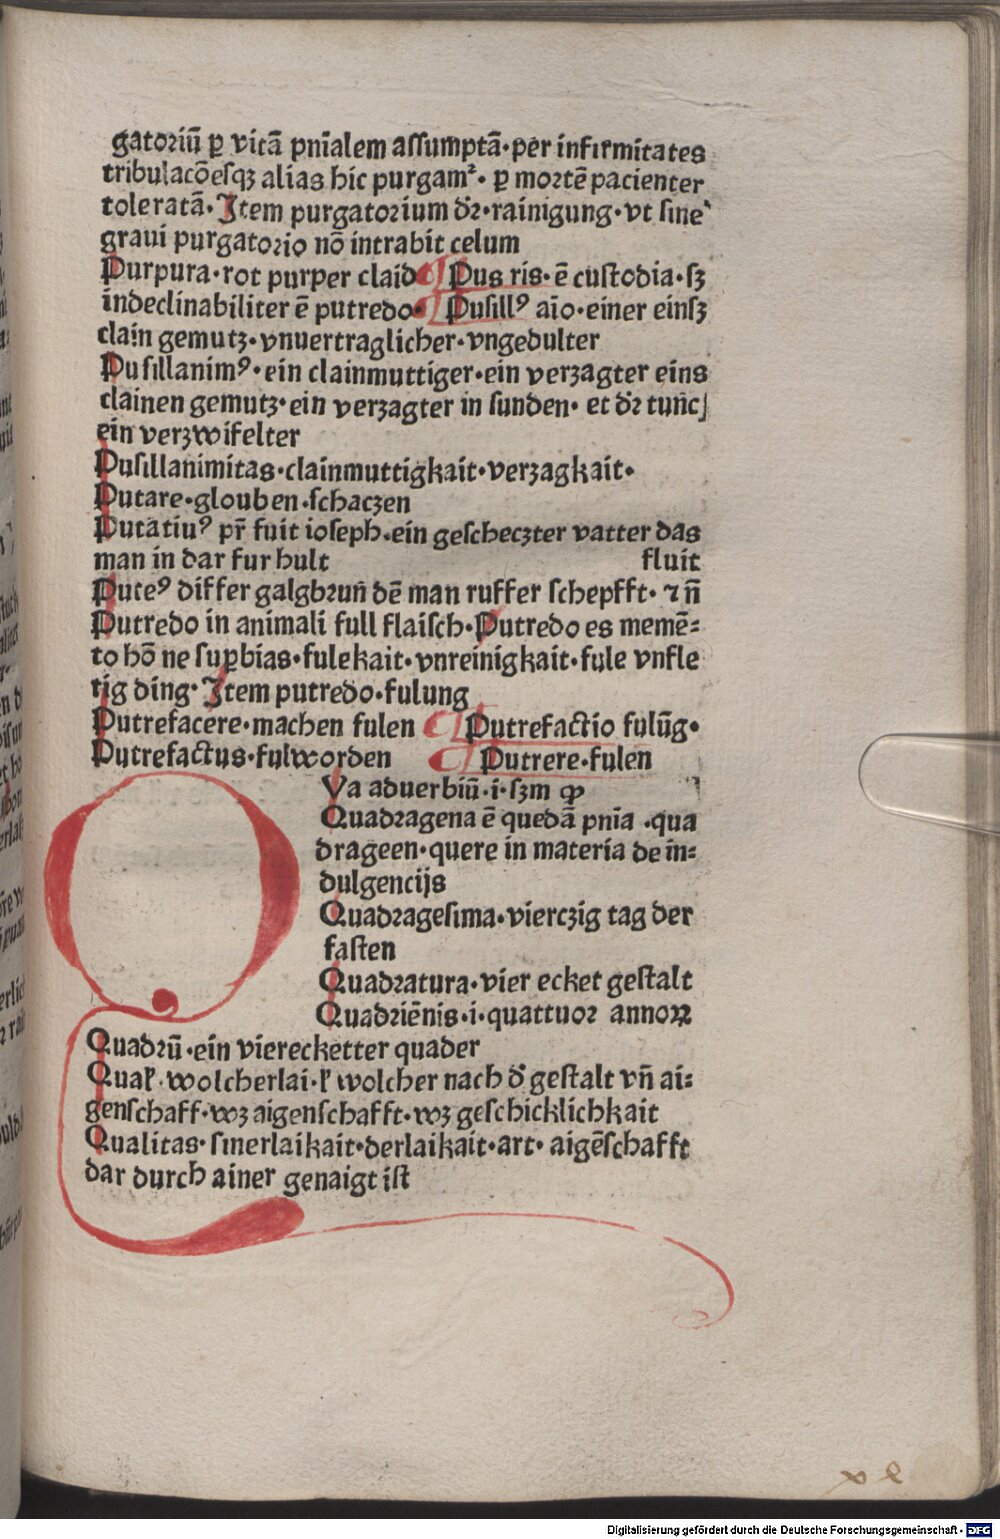 gatoriũ ꝑ vitã pnĩalem assumptã·per infirmitates
tribulacõesqꝫ alias hic purgamᷣ· ꝑ mortẽ pacienter
toleratã·Item purgatorium dꝛ·rainigung·vt sine
graui purgatorio nõ intrabit celum
Purpura·rot purper claid ¶ Pus ris·ẽ custodia·sꝫ
indeclinabiliter ẽ putredo· ¶ Pusillꝰ aĩo·einer einsꝫ
clain gemutz·vnuertraglicher·vngedulter
Pusillanimꝰ·ein clainmuttiger·ein verzagter eins
clainen gemutz·ein verzagter in sunden· et dꝛ tunc
ein verzwifelter
Pusillanimitas·clainmuttigkait·verzagkait·
Putare·glouben·schaczen
Putatiuꝰ pr̃ fuit ioseph·ein gescheczter vatter das
man in dar fur hult fluit
Puteꝰ differ galgbruñ dẽ man ruffer schepfft·⁊ ñ
Putredo in animali full flaisch·Putredo es memẽ⸗
to hõ ne suꝑbias·fulekait·vnreinigkait·fule vnfle
tig ding·Item putredo·fulung
Putrefacere·machen fulen ¶ Putrefactio fulũg·
Putrefactus·fulworden ¶ Putrere·fulen
QVa aduerbiũ·i·sꝫm ꝙ
Quadragena ẽ quedã pnĩa ·qua
drageen·quere in materia de in⸗
dulgencijs
Quadragesima·vierczig tag der
fasten
Quadratura·vier ecket gestalt
Quadriẽnis·i·quattuor annoꝝ
Quadrũ·ein vierecketter quader
Qual̕·wolcherlai·l̕ wolcher nach d̕ gestalt vñ ai⸗
genschaff·wꝫ aigenschafft·wꝫ geschicklichkait
Qualitas·sinerlaikait·derlaikait·art·aigẽschafft
dar durch ainer genaigt ist
Digitalisierung gefördert durch die Deutsche Forschungsgemeinschaft - DFG